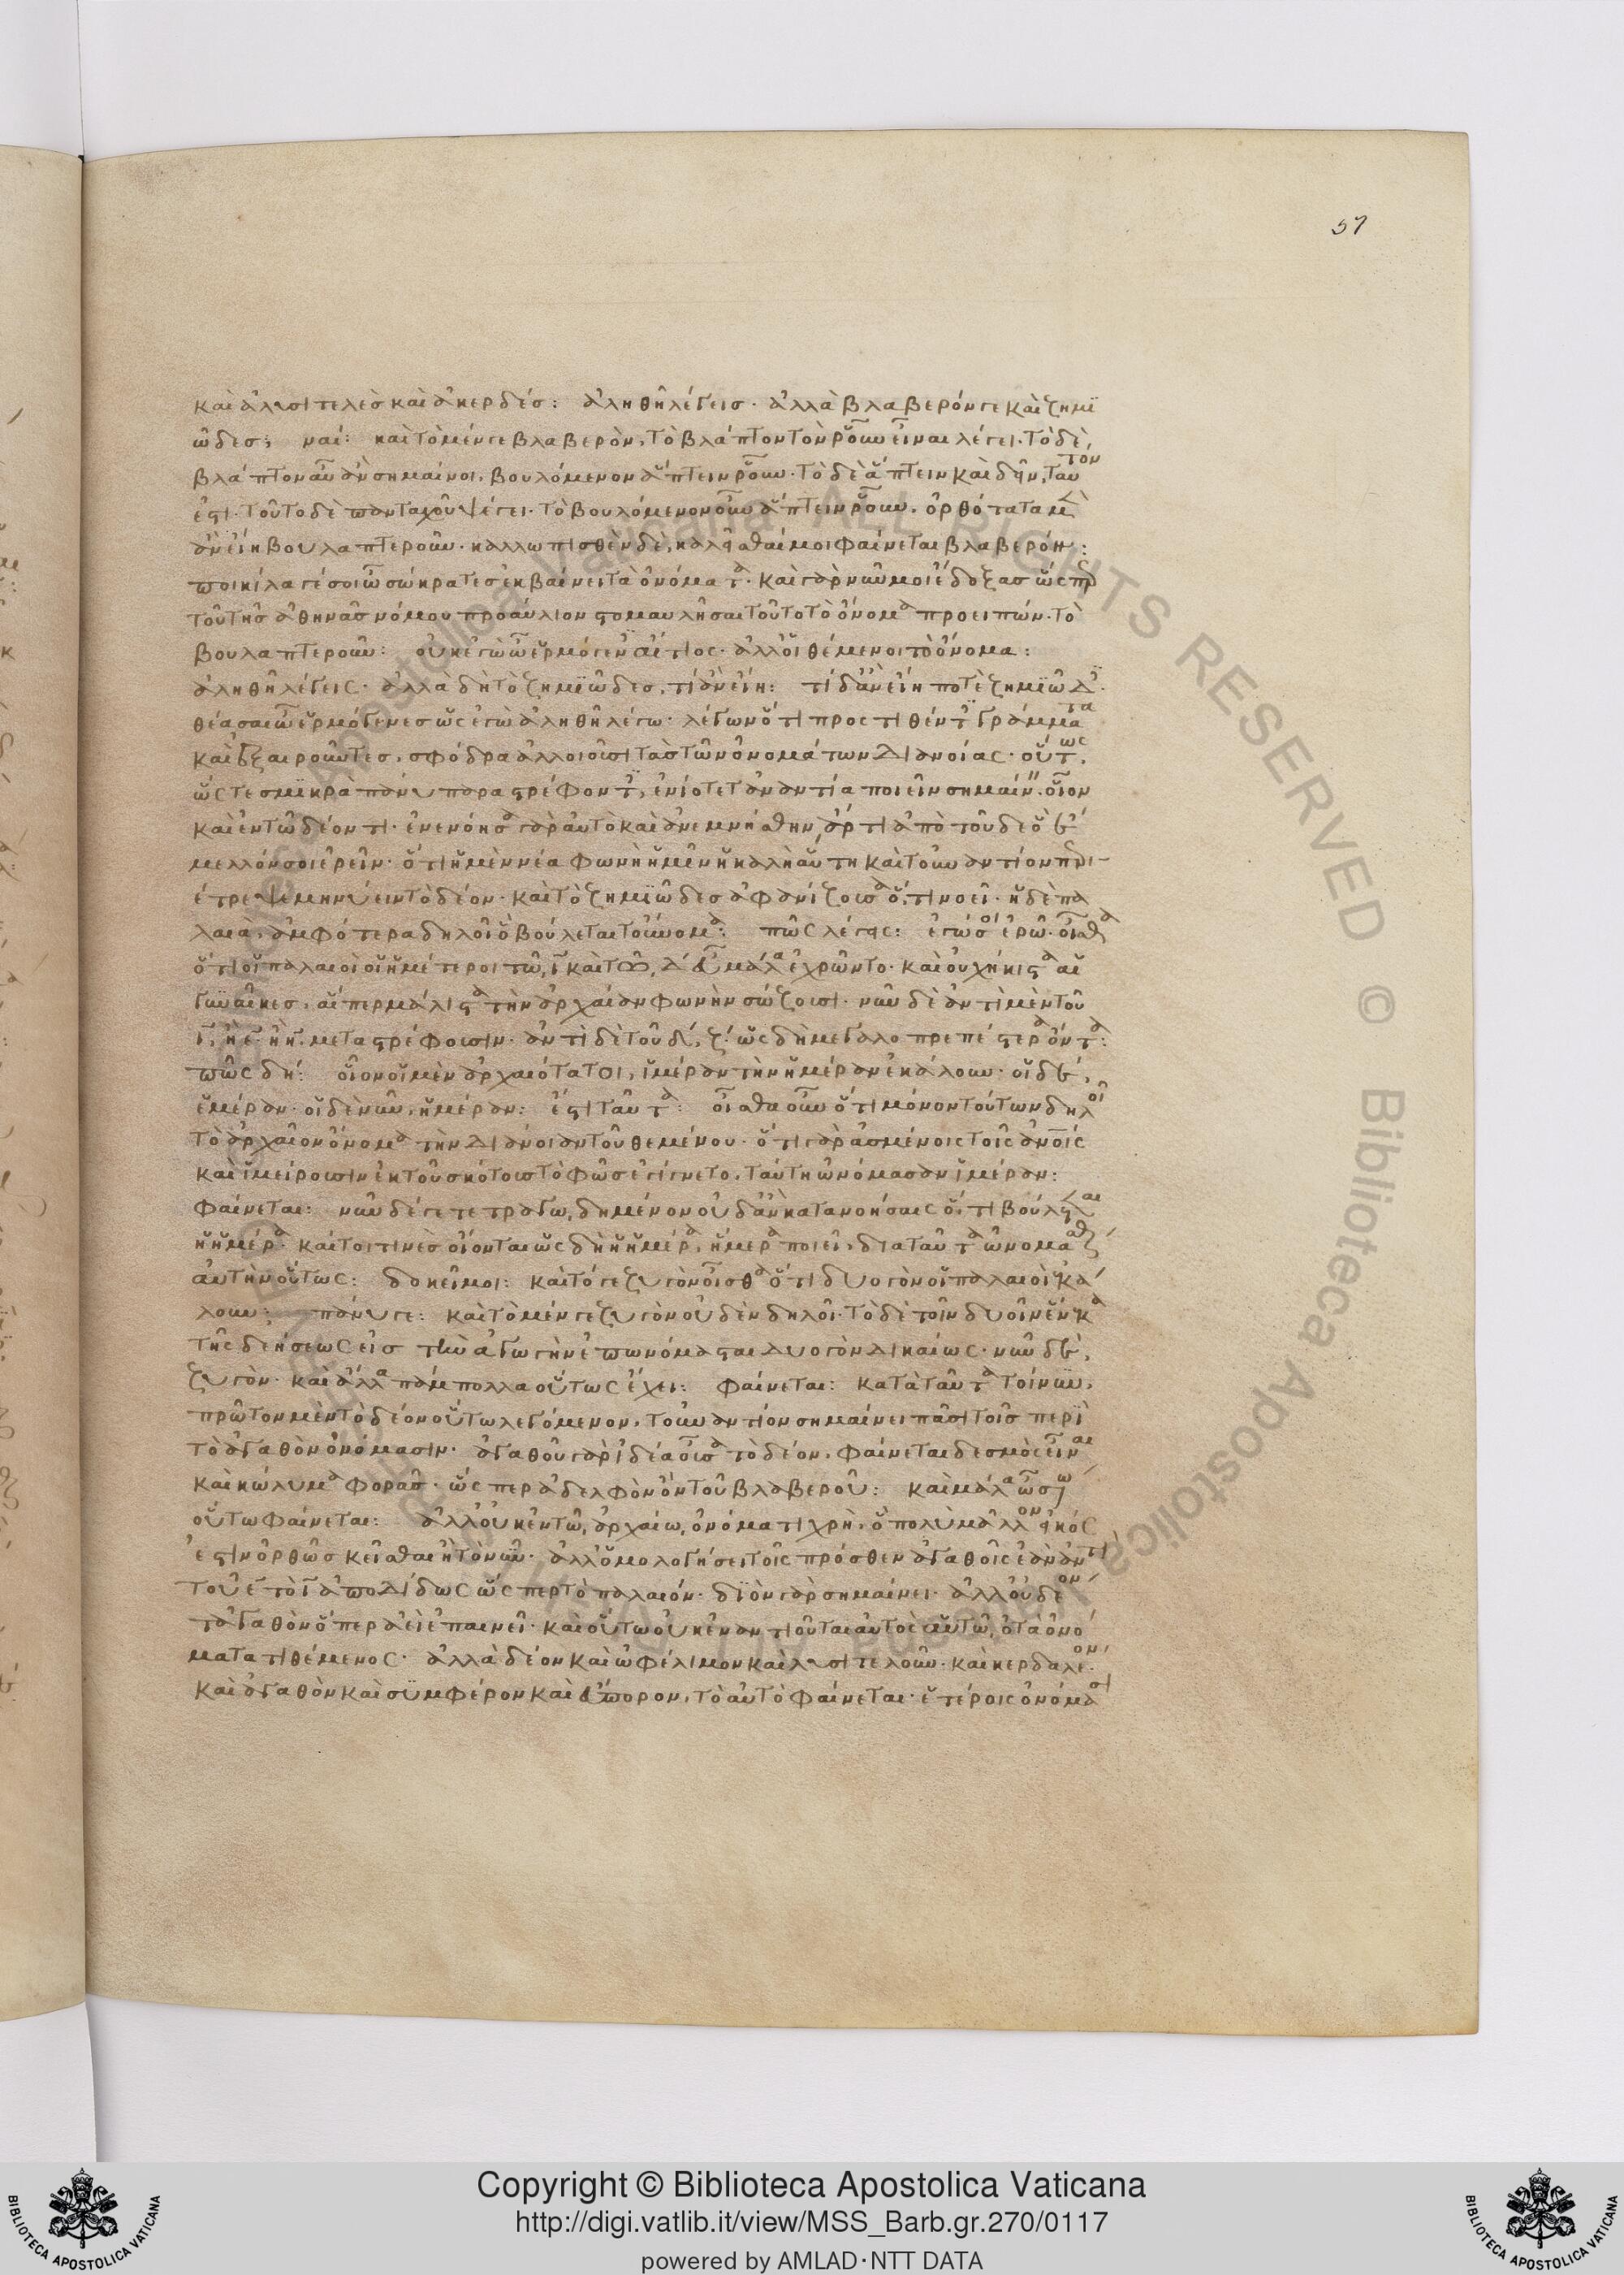 57
καὶ ἀλυσιτελὲσ καὶ ἀκερδές: ἀληθῆ λέγεισ· ἀλλὰ βλαβερόν γε καὶ ζημϊ
ῶδεσ; ναί: καὶ τὸ μέν γε βλαβερὸν, τὸ βλάπτον τὸν ροῦν εἶναι λέγει. τὸ δὲ,
βλάπτον αὖ ἂν σημαίνοι, βουλόμενον ἅπτειν ροῦν· τὸ δὲ ἅπτειν καὶ δεῖν, ταυτόν
ἐστι· τοῦτο δὲ πανταχοῦ ψέγει· τὸ βουλόμενον οὖν ἅπτειν ροῦν, ὀρθότατα μὲν
ἂν εἴη βουλαπτεροῦν· καλλωπισθὲν δὲ, καλεῖσθαί μοι φαίνεται βλαβερόν:
ποικίλα γέ σοι ὦ σώκρατεσ ἐκβαίνει τὰ ὀνόματα· καὶ γὰρ νῦν μοι ἔδοξασ ὥσπερ
τοῦ τῆσ ἀθηνᾶσ νόμου προαύλιον στομαυλῆσαι τοῦτο τὸ ὄνομα προειπών· τὸ
βουλαπτεροῦν: οὐκ ἐγὼ ὦ ἑρμόγενεσ αἴτιος· ἀλλ οἱ θέμενοι τὸ ὄνομα:
ἀληθῆ λέγεις· ἀλλὰ δὴ τὸ ζημϊῶδεσ, τί ἂν εἴη: τί δ ἂν εἴη ποτὲ ζημϊῶδες·
θέασαι ὦ ἑρμόγενεσ ὡς ἐγὼ ἀληθῆ λέγω· λέγων ὅτι προστιθέντες γράμματα
καὶ ἐξαιροῦντεσ, σφόδρα ἀλλοιοῦσι τὰσ τῶν ὀνομάτων διανοίας· οὕτως,
ὥστε σμϊκρὰ πάνυ παραστρέφοντες, ἐνίοτε τἀναντία ποιεῖν σημαίνειν. οἷον
καὶ ἐν τῶ δέοντι· ἐνενόησα γὰρ αὐτὸ καὶ ἀνεμνήσθην, ἄρτι ἀπὸ τοῦδε ὃ ἔ
μελλόν σοι ἐρεῖν· ὅτι ἡ μὲν νέα φωνὴ ἡμῖν ἡ καλὴ αὕτη καὶ τοὐναντίον περι
έτρεψε μηνύειν τὸ δέον· καὶ τὸ ζημϊῶδεσ ἀφανίζουσα ὅ,τι νοεῖ· ἡ δὲ πα
λαιὰ, ἀμφότερα δηλοῖ ὃ βούλεται τοὔνομα: πῶς λέγεις: ἐγώ σοι ἐρῶ· οἶσθα
ὅτι οἱ παλαιοὶ οἱ ἡμέτεροι τῶ, ι καὶ τῶ, δ εὖ μάλα ἐχρῶντο· καὶ οὐχ ἥκιστα αἱ
γυναῖκεσ, αἵπερ μάλιστα τὴν ἀρχαίαν φωνὴν σώζουσι· νῦν δὲ ἀντὶ μὲν τοῦ
ι, ἢ ε ἢ η μεταστρέφουσιν· ἀντὶ δὲ τοῦ δ, ζ· ὡς δὴ μεγαλοπρεπέστερα ὄντα:
πῶς δή: οἷον οἱ μὲν ἀρχαιότατοι, ἱμέραν τὴν ἡμέραν ἐκάλουν· οἱ δὲ,
ἑμέραν· οἱ δὲ νῦν, ἡμέραν: ἔστι ταῦτα: οἶσθα οὖν ὅτι μόνον τούτων δηλοῖ
τὸ ἀρχαῖον ὄνομα τὴν διάνοιαν τοῦ θεμένου· ὅτι γὰρ ἀσμένοις τοῖς ἀνοις
καὶ ἱμείρουσιν ἐκ τοῦ σκότουσ τὸ φῶσ ἐγίγνετο, ταύτη ὠνόμασαν ἱμέραν:
φαίνεται: νῦν δέ γε τετραγωδημένον οὐδ ἂν κατανοήσαις ὅ,τι βούλεται
ἡ ἡμέρα· καίτοι τινὲσ οἴονται ὡς δὴ ἡ ἡμέρα ἥμερα ποιεῖ, διὰ ταῦτα ὠνομάσθαι
αὐτὴν οὕτως: δοκεῖ μοι: καὶ τό γε ζυγὸν οἶσθα ὅτι δυογὸν οἱ παλαιοὶ ἐκά
λουν: πάνυ γε: καὶ τὸ μέν γε ζυγὸν οὐδὲν δηλοῖ· τὸ δὲ τοῖν δυοῖν ἕνεκα
τῆς δεήσεως εἰσ τὴν ἀγωγὴν ἐπωνόμασται δυογὸν δικαίως· νῦν δὲ,
ζυγὸν· καὶ ἄλλα πάμπολλα οὕτως ἔχει: φαίνεται: κατὰ ταῦτα τοίνυν,
πρῶτον μὲν τὸ δέον οὕτω λεγόμενον, τοὐναντίον σημαίνει πᾶσι τοῖσ περὶ
τὸ ἀγαθὸν ὀνόμασιν· ἀγαθοῦ γὰρ ἰδέα οὖσα τὸ δέον, φαίνεται δεσμὸς εἶναι
καὶ κώλυμα φορᾶσ· ὥσπερ ἀδελφὸν ὂν τοῦ βλαβεροῦ: καὶ μάλα ὦ σώ
οὕτω φαίνεται: ἀλλ οὐκ ἐν τῶ, ἀρχαίω, ὀνόματι χρῆ, ὃ πολὺ μᾶλλον εἰκός
ἐστιν ὀρθῶσ κεῖσθαι ἢ τὸ νῦν· ἀλλ ὁμολογήσει τοῖς πρόσθεν ἀγαθοῖς ἐὰν ἀντὶ
τοῦ ε τὸ ι ἀποδίδως ὥσπερ τὸ παλαιόν· διϊὸν γὰρ σημαίνει· ἀλλ οὐ δέον
τἀγαθὸν ὅπερ ἀεὶ ἐπαινεῖ· καὶ οὕτω οὐκ ἐναντιοῦται αὐτὸς αὑτῶ, ὁ τὰ ὀνό
ματα τιθέμενος· ἀλλὰ δέον καὶ ὠφέλιμον καὶ λυσιτελοῦν· καὶ κερδαλέον·
καὶ ἀγαθὸν καὶ συμφέρον καὶ εὔπορον, τὸ αὐτὸ φαίνεται· ἑτέροις ὀνόμασι
Copyright © Biblioteca Apostolica Vaticana
http://digi.vatlib.it/view/MSS_Barb.gr.270/0117
powered by AMLAD·NTT DATA
BIBLIOTECA APOSTOLICA VATICANA
BIBLIOTECA APOSTOLICA VATICANA